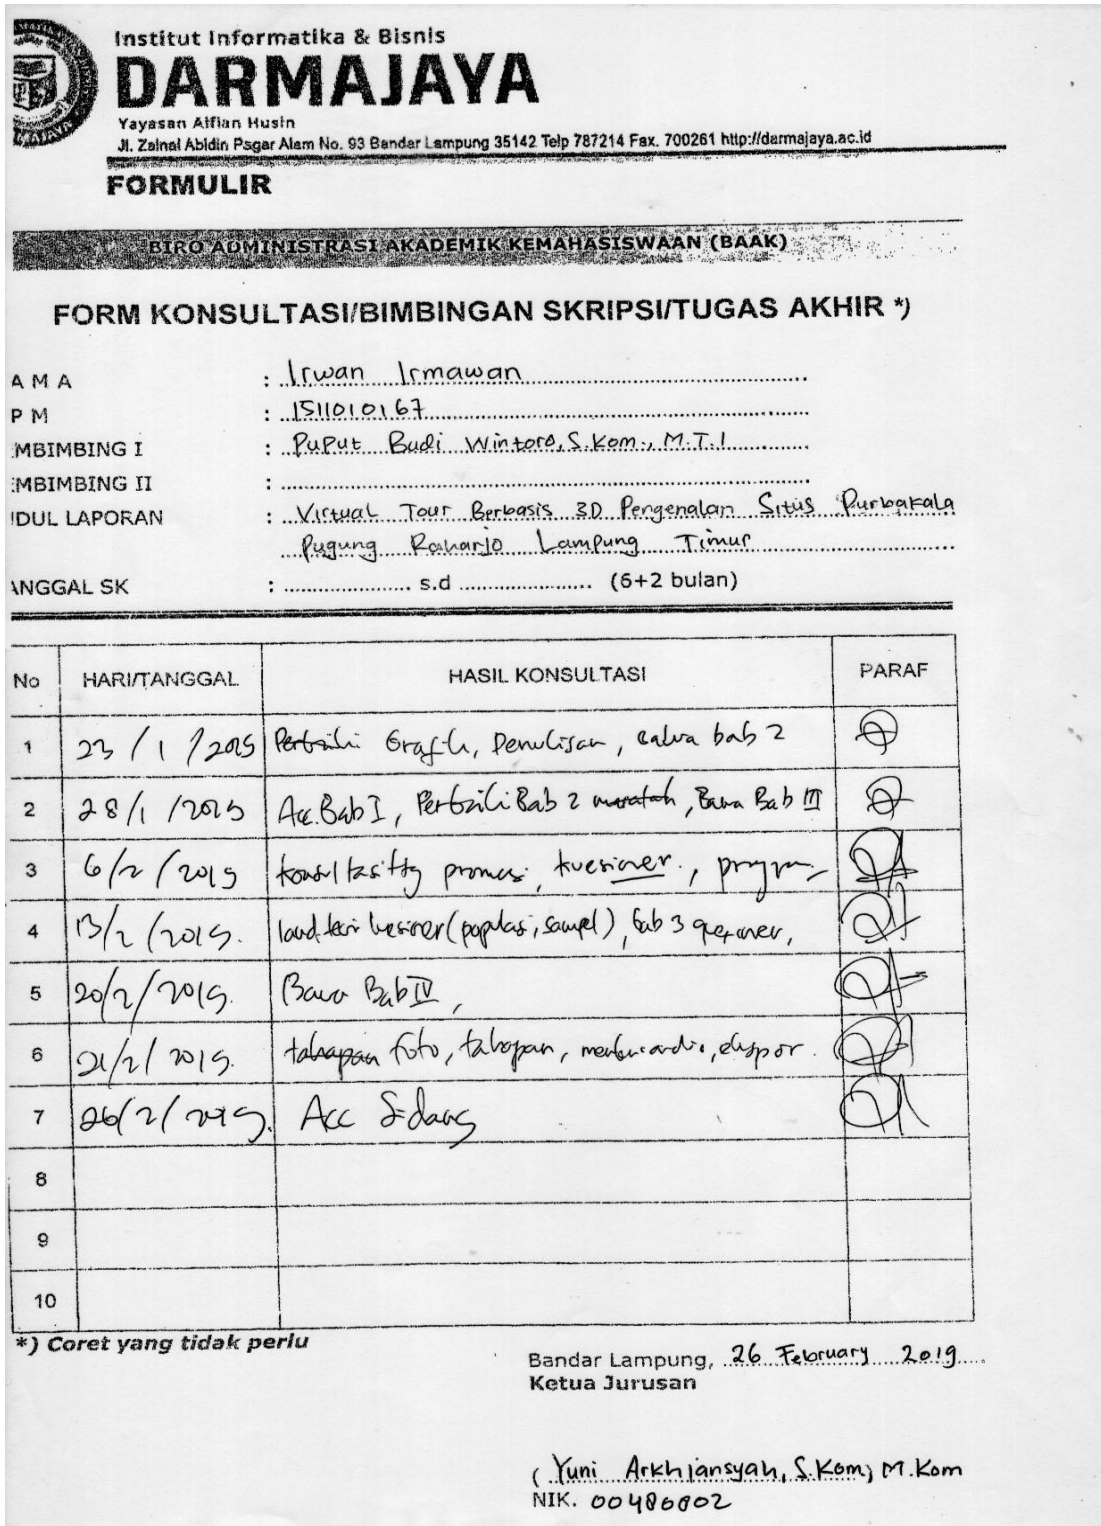 Institut Informatika & Bisnis
DARMAJAYA
Yayasan Alfian Husin
Jl. Zainal Abidin Pagar Alam No. 93 Bandar Lampung 35142 Telp 787214 Fax. 700261 http://darmajaya.ac.id
FORMULIR
BIRO ADMINISTRASI AKADEMIK KEMAHASISWAAN (BAAK)
FORM KONSULTASI/BIMBINGAN SKRIPSI/TUGAS AKHIR *)
AMA : Irwan Irmawan
PM : 1511010167
MBIMBING I : Puput Budi Wintoro, S.Kom., M.T.I
MBIMBING II :
DUL LAPORAN : Virtual Tour Berbasis 3D Pengenalan Situs Purbakala
Pugung Raharjo Lampung Timur
ANGGAL SK : ..................... s.d ..................... (6+2 bulan)
No HARI/TANGGAL HASIL KONSULTASI PARAF
1 23/1/2019 Perbaiki Grafik, Penulisan, bab 2
2 28/1/2019 Acc Bab I, Perbaiki Bab 2, Bawa Bab III
3 6/2/2019 konsultasi kuesioner,
4 13/2/2019. (populasi, sampel), bab 3
5 20/2/2019. Bawa Bab IV,
6 21/2/2019. tahapan foto, tahapan,
7 26/2/2019. Acc Sidang
8
9
10
*) Coret yang tidak perlu
Bandar Lampung, 26 February 2019
Ketua Jurusan
(Yuni Arkhiansyah, S.Kom, M.Kom
NIK. 00480802